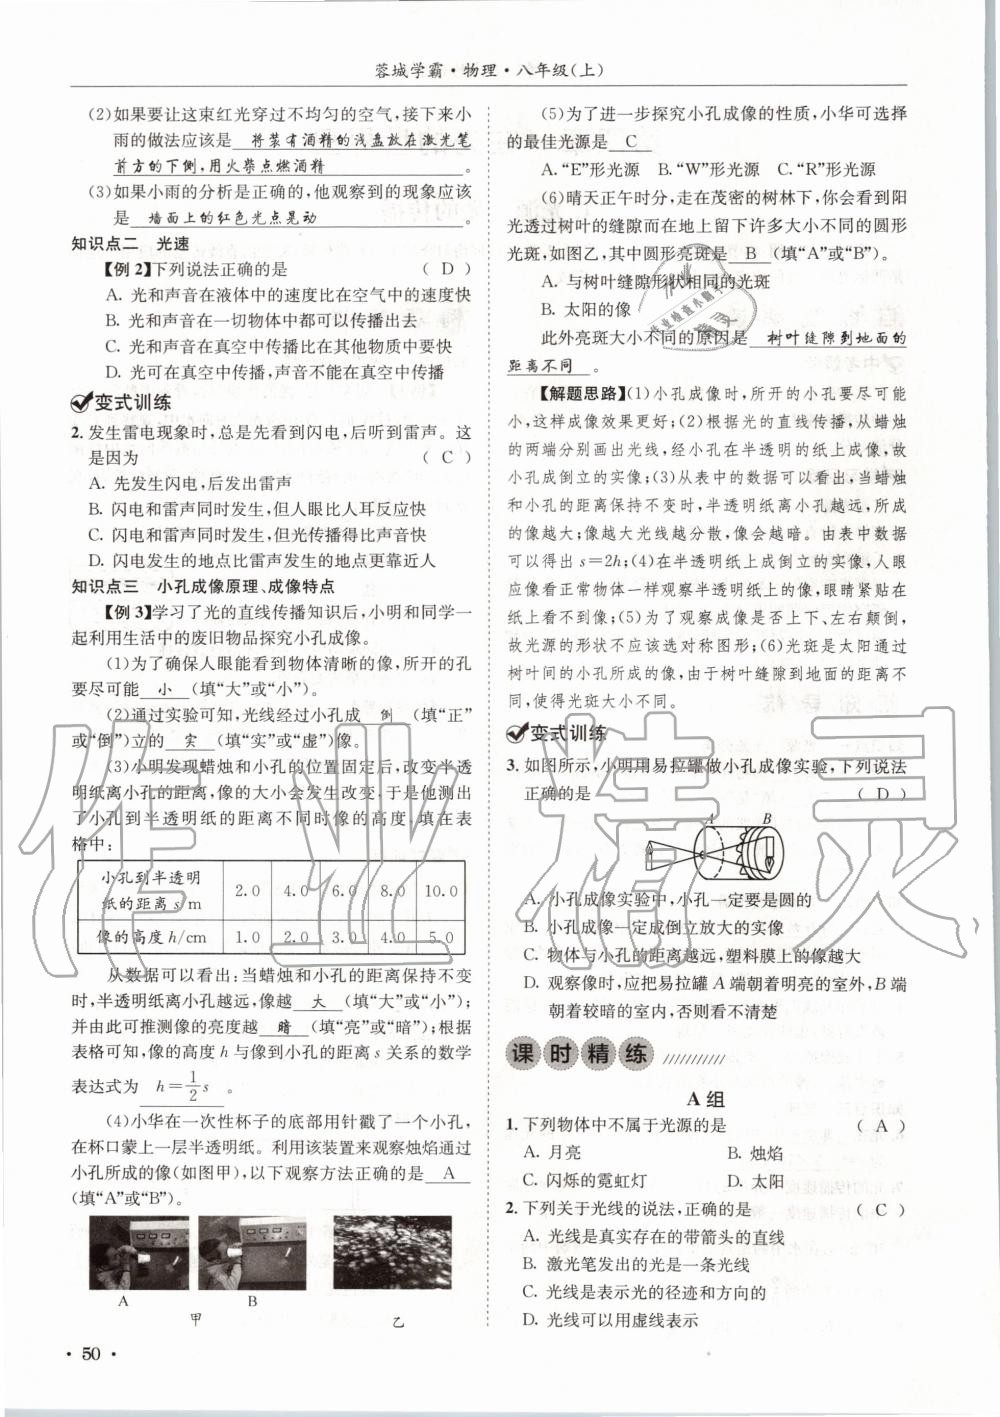 蓉城学霸·物理·八年级(上)
(2)如果要让这束红光穿过不均匀的空气,接下来小
雨的做法应该是 将装有酒精的浅盘放在激光笔
前方的下侧,用火柴点燃酒精 。
(3)如果小雨的分析是正确的,他观察到的现象应该
是 墙面上的红色光点晃动 。
知识点二 光速
【例2】下列说法正确的是 ( D )
A. 光和声音在液体中的速度比在空气中的速度快
B. 光和声音在一切物体中都可以传播出去
C. 光和声音在真空中传播比在其他物质中要快
D. 光可在真空中传播,声音不能在真空中传播
变式训练
2. 发生雷电现象时,总是先看到闪电,后听到雷声。这
是因为 ( C )
A. 先发生闪电,后发出雷声
B. 闪电和雷声同时发生,但人眼比人耳反应快
C. 闪电和雷声同时发生,但光传播得比声音快
D. 闪电发生的地点比雷声发生的地点更靠近人
知识点三 小孔成像原理、成像特点
【例3】学习了光的直线传播知识后,小明和同学一
起利用生活中的废旧物品探究小孔成像。
(1)为了确保人眼能看到物体清晰的像,所开的孔
要尽可能 小 (填“大”或“小”)。
(2)通过实验可知,光线经过小孔成 倒 (填“正”
或“倒”)立的 实 (填“实”或“虚”)像。
(3)小明发现蜡烛和小孔的位置固定后,改变半透
明纸离小孔的距离,像的大小会发生改变,于是他测出
了小孔到半透明纸的距离不同时像的高度,填在表
格中:
小孔到半透明
纸的距离 s/m 2.0 4.0 6.0 8.0 10.0
像的高度 h/cm 1.0 2.0 3.0 4.0 5.0
从数据可以看出:当蜡烛和小孔的距离保持不变
时,半透明纸离小孔越远,像越 大 (填“大”或“小”);
并由此可推测像的亮度越 暗 (填“亮”或“暗”);根据
表格可知,像的高度 h 与像到小孔的距离 s 关系的数学
表达式为 h=1/2 s 。
(4)小华在一次性杯子的底部用针戳了一个小孔,
在杯口蒙上一层半透明纸。利用该装置来观察烛焰通过
小孔所成的像(如图甲),以下观察方法正确的是 A
(填“A”或“B”)。
A B
甲 乙
· 50 ·
(5)为了进一步探究小孔成像的性质,小华可选择
的最佳光源是 C
A.“E”形光源 B.“W”形光源 C.“R”形光源
(6)晴天正午时分,走在茂密的树林下,你会看到阳
光透过树叶的缝隙而在地上留下许多大小不同的圆形
光斑,如图乙,其中圆形亮斑是 B (填“A”或“B”)。
A. 与树叶缝隙形状相同的光斑
B. 太阳的像
此外亮斑大小不同的原因是 树叶缝隙到地面的
距离不同 。
【解题思路】(1)小孔成像时,所开的小孔要尽可能
小,这样成像效果更好;(2)根据光的直线传播,从蜡烛
的两端分别画出光线,经小孔在半透明的纸上成像,故
小孔成倒立的实像;(3)从表中的数据可以看出,当蜡烛
和小孔的距离保持不变时,半透明纸离小孔越远,所成
的像越大;像越大光线越分散,像会越暗。由表中数据
可以得出 s=2h;(4)在半透明纸上成倒立的实像,人眼
应像看正常物体一样观察半透明纸上的像,眼睛紧贴在
纸上看不到像;(5)为了观察成像是否上下、左右颠倒,
故光源的形状不应该选对称图形;(6)光斑是太阳通过
树叶间的小孔所成的像,由于树叶缝隙到地面的距离不
同,使得光斑大小不同。
变式训练
3. 如图所示,小明用易拉罐做小孔成像实验,下列说法
正确的是 ( D )
A B
A. 小孔成像实验中,小孔一定要是圆的
B. 小孔成像一定成倒立放大的实像
C. 物体与小孔距离越远,塑料膜上的像越大
D. 观察像时,应把易拉罐 A 端朝着明亮的室外,B 端
朝着较暗的室内,否则看不清楚
课时精练
A 组
1. 下列物体中不属于光源的是 ( A )
A. 月亮 B. 烛焰
C. 闪烁的霓虹灯 D. 太阳
2. 下列关于光线的说法,正确的是 ( C )
A. 光线是真实存在的带箭头的直线
B. 激光笔发出的光是一条光线
C. 光线是表示光的径迹和方向的
D. 光线可以用虚线表示
作业精灵